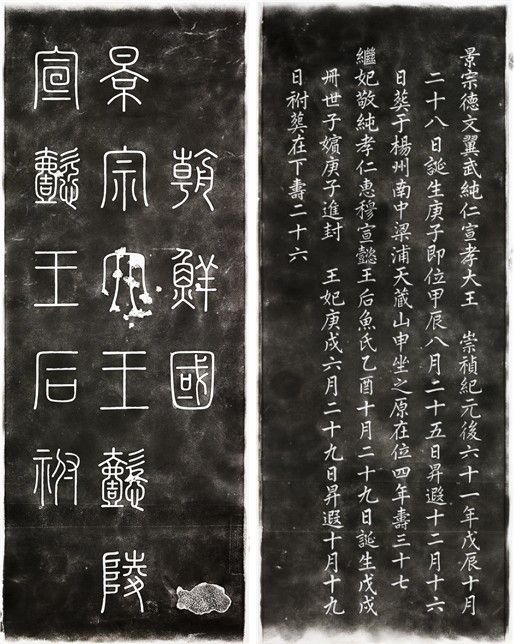 朝鮮國
景宗大王懿陵
宣懿王后祔
景宗德文翼武純仁宣孝大王 崇禎紀元後六十一年戊辰十月
二十八日誕生庚子即位甲辰八月二十五日昇遐十二月十六
日葬于楊州南中梁浦天蔵山申坐之原在位四年壽三十七
繼妃敬純孝仁惠穆宣懿王后魚氏乙酉十月二十九日誕生戊戌
冊世子嬪庚子進封 王妃庚戌六月二十九日昇遐十月十九
日祔葬在下壽二十六